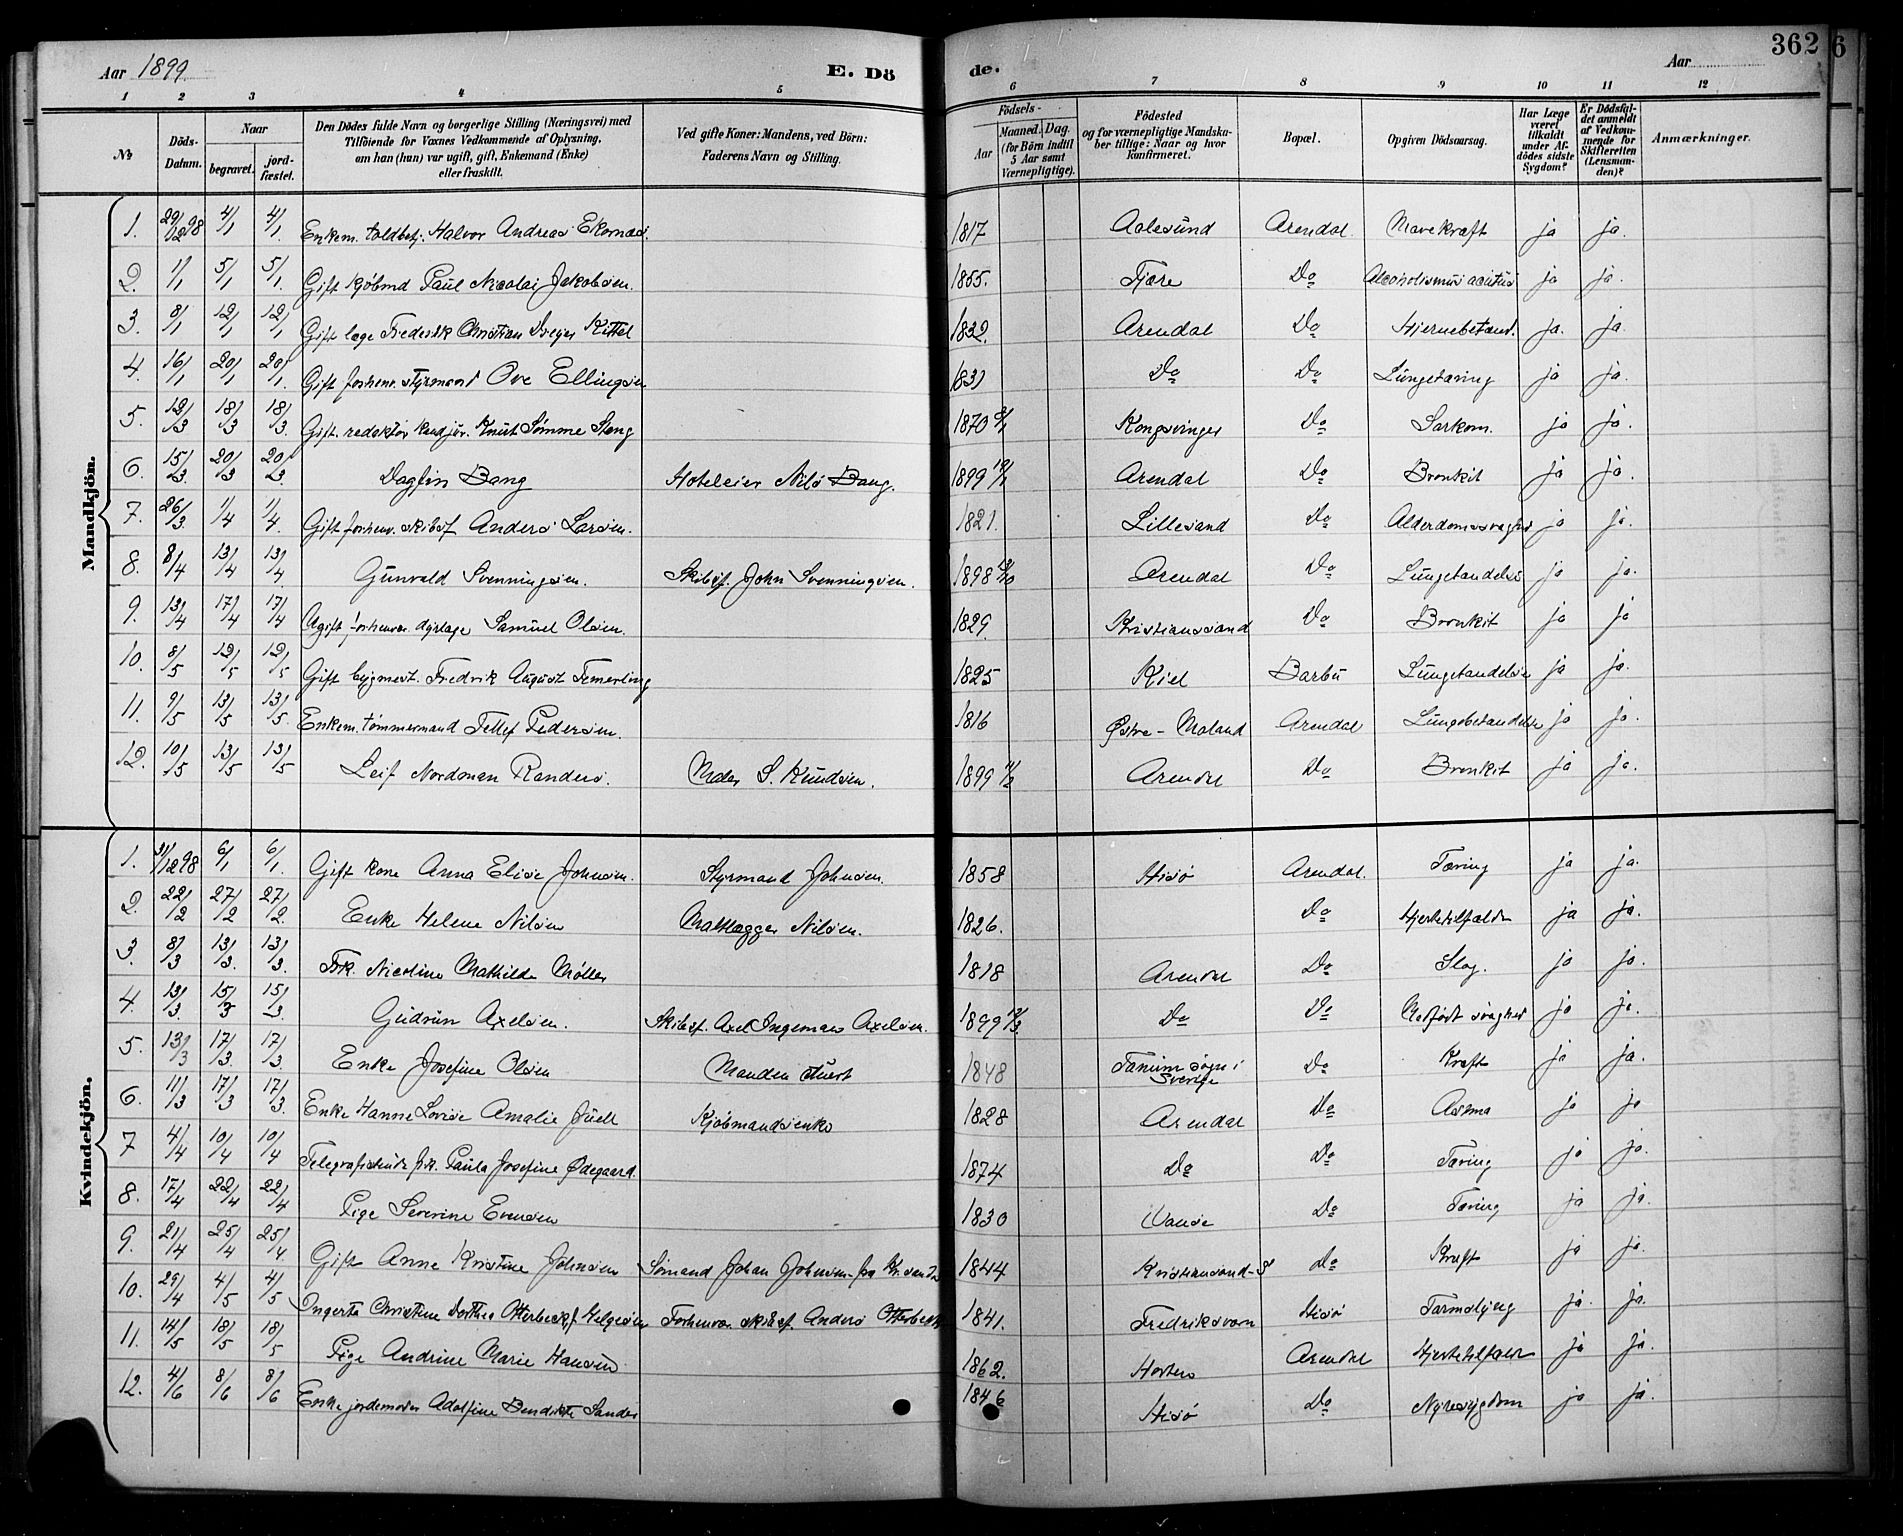 362
6
Aar 1899.
E. Dö
de.
Aar
1 2 3 4 5 6 7 8 9 10 11 12
No
Döds-Datum.
Naar
begravet.
jord-fæstet.
Den Dödes fulde Navn og borgerlige Stilling (Næringsvei) med
Tilföiende for Voxnes Vedkommende af Oplysning,
om han (hun) var ugift, gift, Enkemand (Enke)
eller fraskilt.
Ved gifte Koner: Mandens, ved Börn:
Faderens Navn og Stilling.
Födsels-
Aar
Maaned. Dag.
(for Börn indtil
5 Aar samt
Værnepligtige).
Födested
og for værnepligtige Mandska-
ber tillige: Naar og hvor
konfirmeret.
Bopæl.
Opgiven Dödsaarsag.
Har Læge
været
tilkaldt
under Af-
dödes sidste
Sygdom?
Er Dödsfal-
det anmeldt
af Vedkom-
mende for
Skifteretten
(Lensman-
den)?
Anmærkninger.
Mandkjön.
1. 29/12 98 4/1 4/1. Enkem. toldbetj. Halvor Andreas Ekornæs. 1817 Aalesund Arendal Mavekræft ja ja.
2. 1/1 5/1 5/1. Gift kjøbmd Paul Nicolai Jakobsen. 1855. Tjøre Do Alcoholismus acutus ja ja.
3. 8/1 12/1 12/1 Gift læge Frederik Christian Dreyer Kittel 1832. Arendal Do Hjernebetænd. ja. ja.
4. 16/1 20/1 20/1. Gift forhenv. styrmand Ove Ellingsen 1831 Do Do Lungetæring ja ja.
5. 12/3 18/3 18/3. Gift. redaktør kand jur. Knut Sømme Steng 1870 Kongsvinger Do Sarkom. ja ja.
6. 15/3. 20/3 20/3. Dagfin Bang Hoteleier Nils Bang. 1899 Arendal Do Bronkit ja ja.
7. 26/3. 1/4 1/4. Gift forhenv. skibsf Anders Larsen. 1821. Lillesand Do Alderdomssvaghed ja ja.
8. 8/4 13/4 13/4 Gunvald Svenningsen. Skibsf. John Svenningsen. 1898 Arendal Do Lungetændelse ja ja.
9. 13/4 17/4 17/4 forhenvær. dyrlæge Samuel Olsen. 1829. Kristianssand Do Bronkit ja ja
10. 8/5 12/5 12/5 Gift bygmest. Fredrik August Temerling 1825 Kiel Barbu Lungetændelse ja ja.
11. 9/5 13/5 13/5. Enkem. tømmermand Tellef Pedersen. 1816 Østre-Moland Arendal Lungebetændelse ja ja.
12. 10/5 13/5 13/5 Leif Nordman Randers. Mder S. Knudsen. 1899 11/2 Arendal Do Bronkit ja ja.
Kvindekjön.
1. 31/12 98 6/1 6/1. Gift kone Anna Elise Johnsen. Styrmand Johnsen. 1858 Hisø Arendal. Tæring ja ja.
2. 22/2 27/2 27/2. Enke Helene Nilsen Nilsen. 1826. Do Hjertetilfælde ja ja.
3. 8/3 13/3. 13/3. Frk. Nicoline Mathilde Møller 1818 Arendal Do Slag. ja ja.
4. 13/3. 15/3 15/3 Gudrun Axelsen. Skibsf. Axel Ingemar Axelsen. 1899 12/3. Do Do Medfødt svaghed ja ja.
5. 13/3 17/3. 17/3 Enke Josefine Olsen Manden stuert 1848 Tanum sogn i Sverige Do Kræft ja ja.
6. 11/3 17/3 17/3. Enke Hanne Lovise Amalie Juell Kjøbmandsenke 1828 Arendal Do Astma ja ja
7 4/4 10/4 10/4 Telegrafistinde frk. Paula Josefine Ødegaard. 1874 Do Do Tæring ja ja.
8. 17/4 22/4 22/4 Pige Severine Evensen 1830 Vanse Do Tæring ja ja.
9. 21/4 25/4 25/4 Gift Anne Kristine Johnsen Sømand Johan Johnsen fra 1844 Kristiansand-S Do Kræft ja ja.
10. 29/4 4/5 4/5 Ingerta Christine Dorthea Otterbeck f. Helgesen Forhenvær. skibsf. Anders Otterbeck 1841. Fredriksværn Hisø Tarmslyng ja. ja.
11. 14/5 18/5 18/5 Pige Andrine Marie Hansen 1862. Horten Arendal Hjertetilfælde ja ja.
12. 4/6 8/6 8/6 Enke jordemoder Adolfine Bendikte Sander 1846 Hisø Do Nyresygdom ja ja.